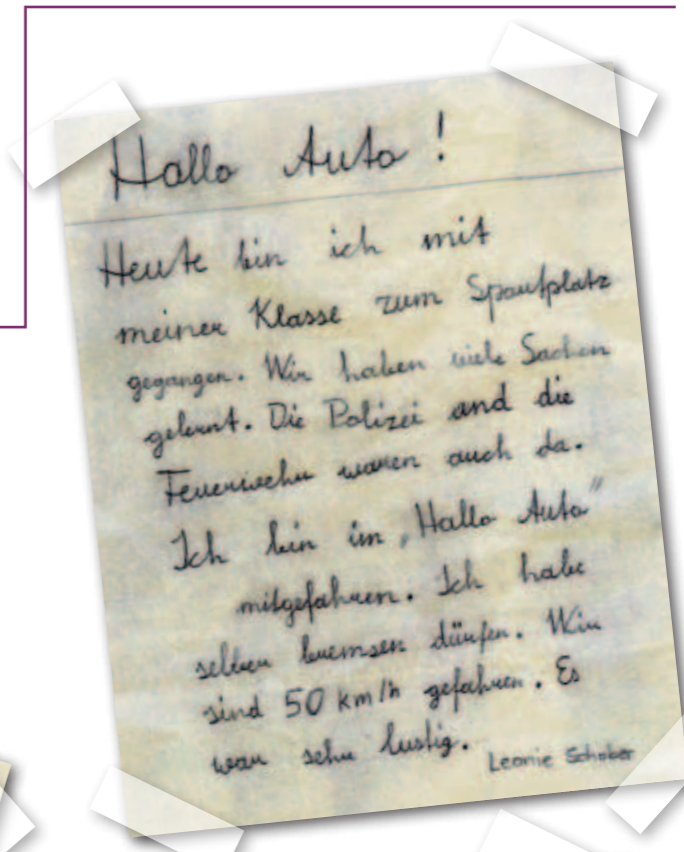 Hallo Auto!
Heute bin ich mit
meiner Klasse zum Sportplatz
gegangen. Wir haben viele Sachen
gelernt. Die Polizei und die
Feuerwehr waren auch da.
Ich bin im „Hallo Auto"
mitgefahren. Ich habe
selber bremsen dürfen. Wir
sind 50 km/h gefahren. Es
war sehr lustig.
Leonie Schober